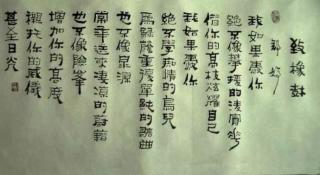 致橡樹
舒婷
我如果愛你
絕不像攀援的凌霄花
借你的高枝炫耀自己
我如果愛你
絕不學痴情的鳥兒
為綠蔭重複單純的歌曲
也不像泉源
常年送來清凉的慰藉
也不像險峰
增加你的高度
襯托你的威儀
甚至日光